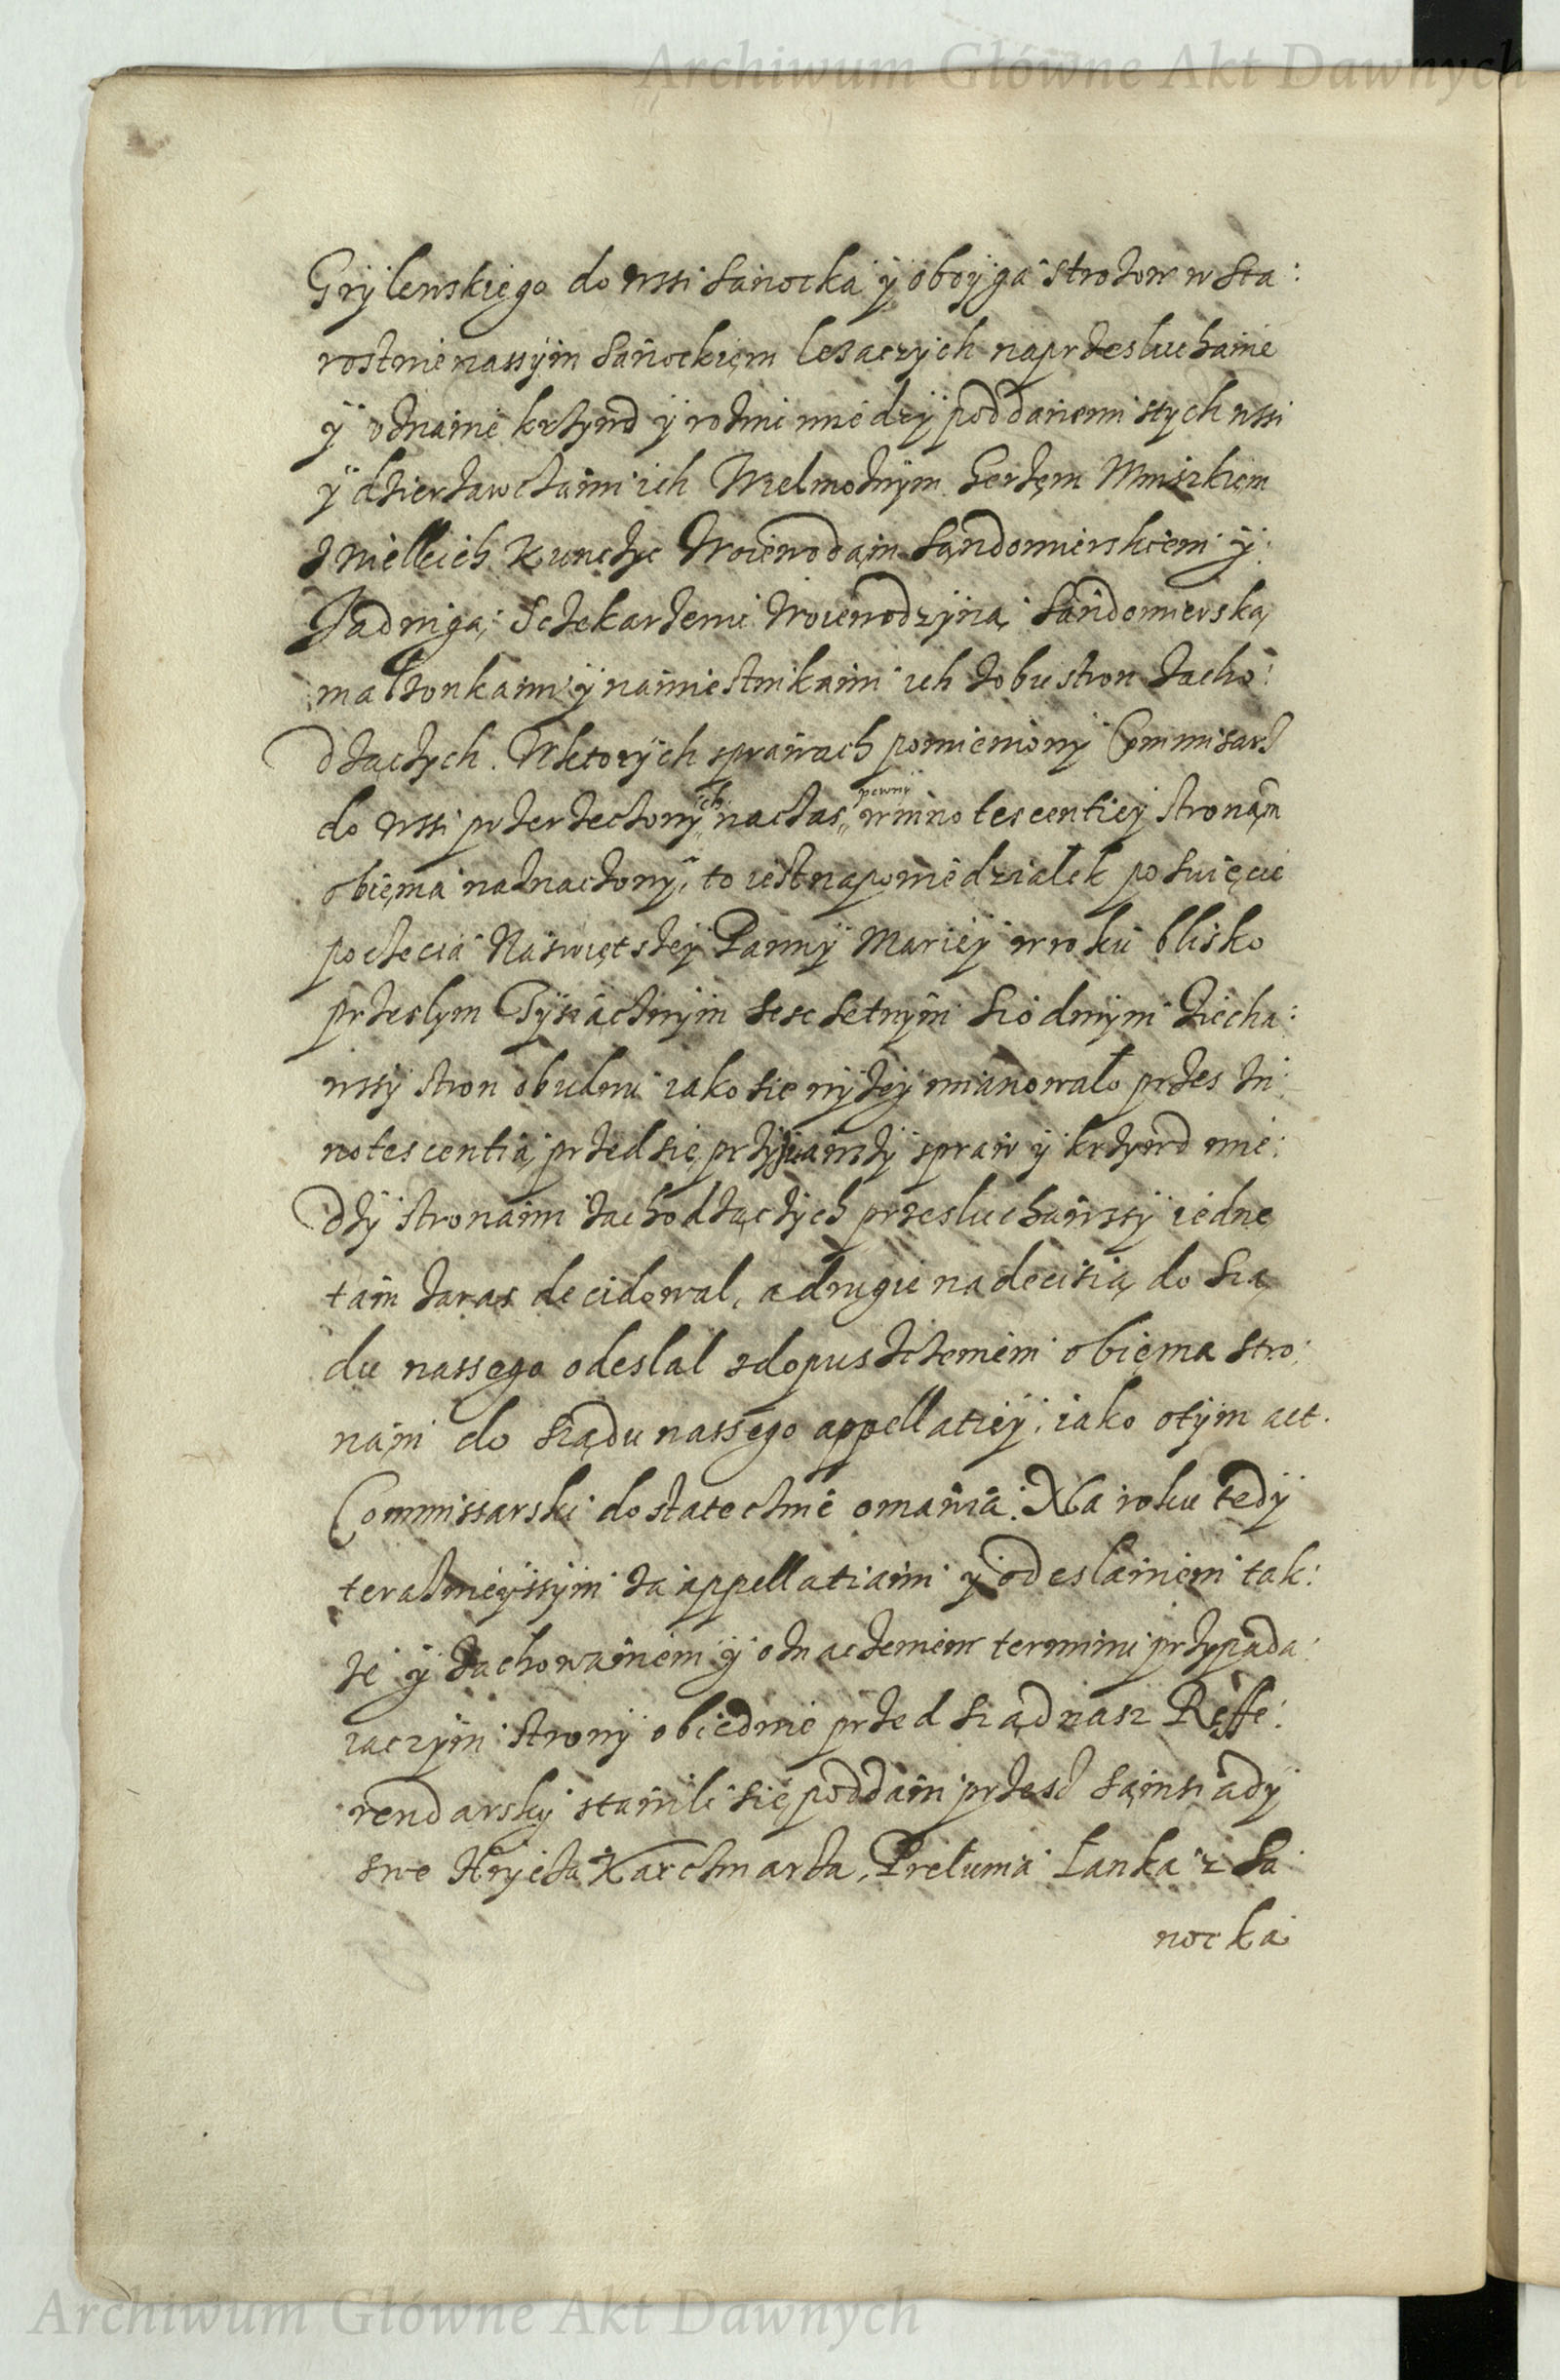 Archiwum Główne Akt Dawnych
Grylewskiego do wssi Sanocka y oboyga Strozow w Sta:
rostwie nassym Sanockiem lezaczych na przesluchanie
y uznanie krzywd y rozni miedzy poddanemi z tych wssi
y dzierzawczami ich Wielmoznym Gerzem Mniszkiem
z Wielkich Kunczyc Woiewodam Sandomierskiem y
Jadwigą Woiewodzyną Sandomierską
malzonkami y namiestnikami ich z obu stron zacho:
dzączych. W ktorych sprawach pomieniony Commisarz
do wssi przerzeczony"ch na czas" pewny w innotescentiey stronąm
obiema naznaczony, to iest na poniedzialek po swięcie
poczecia Naswiętszey Panny Mariey w roku blisko
przeslym Tysiącznym sescsetnym siodmym ziecha:
wssy stron obudwu iako sie wyzey mianowało przes in:
notescentią przed się przyzwawszy spraw y krzywd mie:
dzy stronami zachodzączych przesluchawssy iedne
tam zaras decidowal, a drugie na decisią do Sią
du nassego odeslal z dopuszczeniem obiema stro:
nąm do sządu nassego appellatiey, iako o tym act
Commissarski dostatecznie omawia. Na roku tedy
teraznieyssym za appellatiami y odeslaniem tak:
ze y zachowaniem y oznaczeniem termini przypada:
iaczym strony obiedwie przed sząd nasz Reffe:
rendarsky stawili się poddani przesz Sąmsiady
swe Hrycza Karczmarza, Łanka z Sa
nocka
Archiwum Główne Akt Dawnych